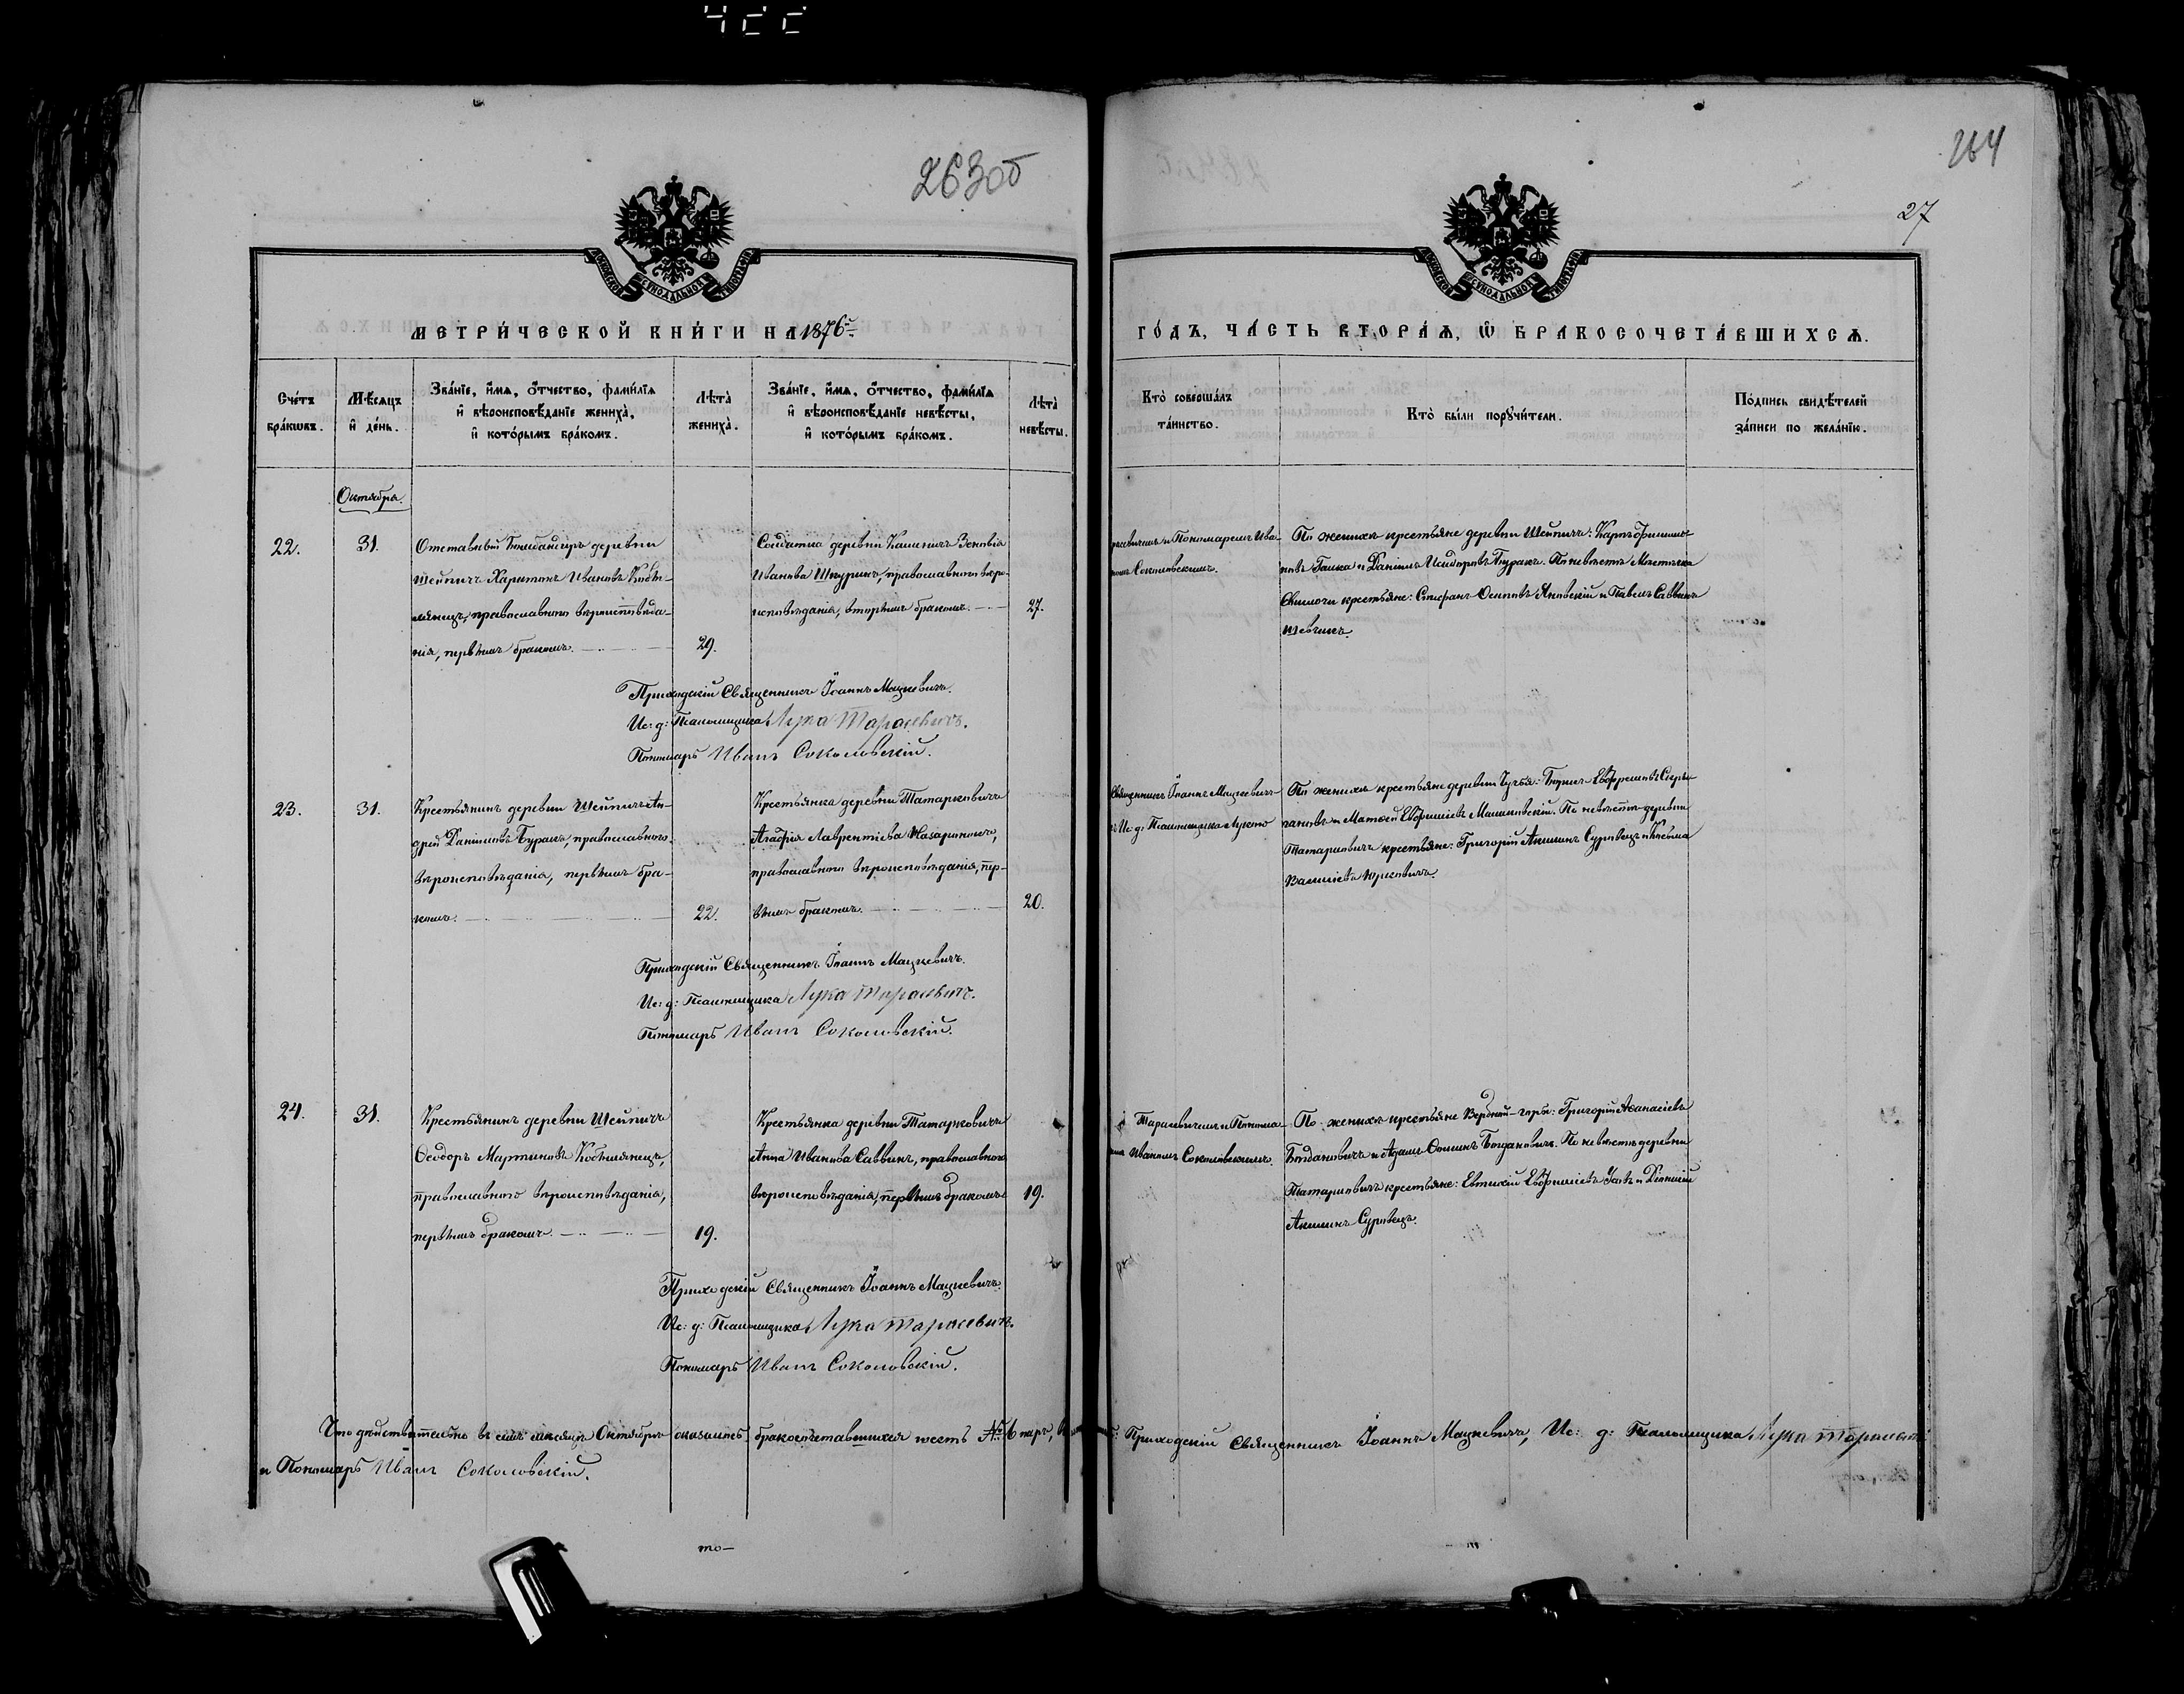 263 об
264
27
МЕТРИ́ЧЕСКОЙ КНИ́ГИ НА 1876й
ГО́ДЪ, ЧА́СТЬ ВТОРА́Ѧ, Ѽ БРАКОСОЧЕТА́ВШИХСѦ.
Сче́тъ бра́кωвъ.
Мѣ́сяцъ и҆ де́нь.
Зва́нїе, и҆́мѧ, ѻ҆́тчество, фами́лїѧ
и҆ вѣроисповѣ́данїе жениха̀,
и҆ кото́рымъ бра́комъ.
Лѣ́та̀ жениха̀.
Зва́нїе, и҆́мѧ, ѻ҆́тчество, фами́лїѧ
и҆ вѣроисповѣ́данїе невѣ́сты,
и҆ кото́рымъ бра́комъ.
Лѣ́та̀ невѣ́сты.
Кто̀ соверша́лъ
та́инство.
Кто̀ бы́ли порꙋчи́тели.
По́дпись свидѣ́телей
за́писи по жела́нїю.
Октября.
22.
31.
Отставный Бомбандиръ деревни
Шейпичъ Харитонъ Ивановъ Кобы-
лянецъ, православнаго вѣроисповѣда-
нія, первымъ бракомъ.
29.
Солдатка деревни Каменичъ Зеновія
Иванова Шкурикъ, православнаго вѣро-
исповѣданія, вторымъ бракомъ.
27.
и Пономаремъ Ива-
номъ Соколовскимъ.
По женихѣ крестьяне деревни Шейпичъ:
и Данiилъ Исидоровъ Буракъ. По невѣстѣ Мѣстечка
Свислочи крестьяне: Стефанъ Осиповъ Яновскій и Павелъ Саввинъ
Шевчикъ.
Приходскій Священникъ Іоаннъ Мацкевичъ.
Ис: д: Псаломщика Лука Тарасевичъ.
Пономарь Иванъ Соколовскій.
23.
31.
Крестьянинъ деревни Шейпичъ Ан-
дрей Даніиловъ Буракъ, православнаго
вѣроисповѣданія, первымъ бра-
комъ.
22.
Крестьянка деревни Татарковичъ
Агафія Лаврентіева Назариковичъ,
православнаго вѣроисповѣданія, пер-
вымъ бракомъ.
20.
Священникъ Іоаннъ Мацкевичъ
и Ис: д: Псаломщика Лукою
По женихѣ крестьяне деревни
По невѣстѣ деревни
Татарковичъ крестьяне: Григорій Акиминъ Суровецъ и Косьма
Василіевъ Юрковичъ.
Приходскій Священникъ Іоаннъ Мацкевичъ.
Ис: д: Псаломщика Лука Тарасевичъ.
Пономарь Иванъ Соколовскій.
24.
31.
Крестьянинъ деревни Шейпичъ
Ѳеодоръ Мартиновъ Кобылянецъ,
православнаго вѣроисповѣданія,
первымъ бракомъ.
19.
Крестьянка деревни Татарковичъ
Анна Иванова Саввикъ, православнаго
вѣроисповѣданія, первымъ бракомъ
19.
Тарасевичемъ и Понома-
Иваномъ Соколовскимъ.
По женихѣ крестьяне Вербной-горы: Григорій Аѳанасіевъ
Богдановичъ и Адамъ Ѳоминъ Богдановичъ. По невѣстѣ деревни
Татарковичъ крестьяне: Евтихій Евфиміевъ и Діонисій
Акиминъ Суровецъ.
Приходскій Священникъ Іоаннъ Мацкевичъ.
Ис: д: Псаломщика Лука Тарасевичъ.
Пономарь Иванъ Соколовскій.
Что дѣйствительно въ семъ мѣсяцѣ Октябрѣ оказалось бракосочетавшихся шесть № 6 паръ, Приходскій Священникъ Іоаннъ Мацкевичъ, Ис: д: Псаломщика Лука Тарасевичъ
и Пономарь Иванъ Соколовскій.
то-